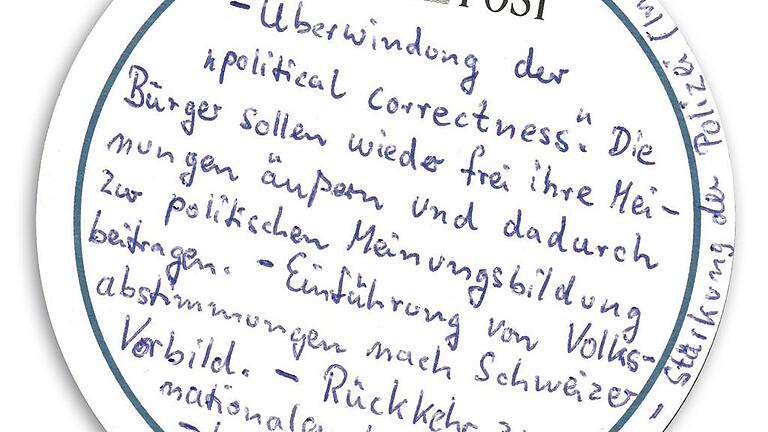 POST
- Überwindung der
„political correctness". Die
Bürger sollen wieder frei ihre Mei-
nungen äußern und dadurch
zur politischen Meinungsbildung
beitragen. - Einführung von Volks-
abstimmungen nach Schweizer
Vorbild. - Rückkehr
- Stärkung der Polizei